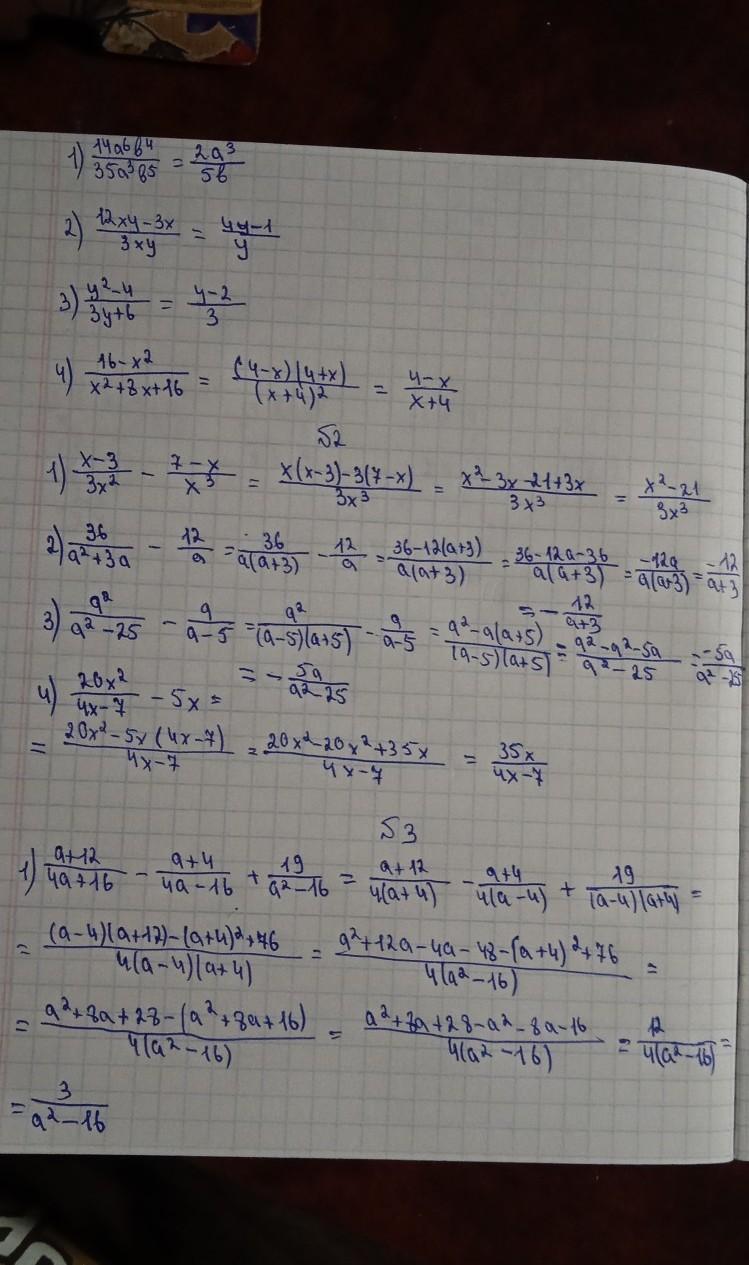 1) 14a⁶b⁴/35a³b⁵ = 2a³/5b
2) 12xy-3x/3xy = 4y-1/y
3) y²-4/3y+6 = y-2/3
4) 16-x²/x²+8x+16 = (4-x)(4+x)/(x+4)² = 4-x/x+4
№2
1) x-3/3x² - 7-x/x³ = x(x-3)-3(7-x)/3x³ = x²-3x-21+3x/3x³ = x²-21/3x³
2) 36/a²+3a - 12/a = 36/a(a+3) - 12/a = 36-12(a+3)/a(a+3) = 36-12a-36/a(a+3) = -12a/a(a+3) = -12/a+3
= - 12/a+3
3) a²/a²-25 - a/a-5 = a²/(a-5)(a+5) - a/a-5 = a²-a(a+5)/(a-5)(a+5) = a²-a²-5a/a²-25 = -5a/a²-25
= - 5a/a²-25
4) 20x²/4x-7 - 5x =
= 20x²-5x(4x-7)/4x-7 = 20x²-20x²+35x/4x-7 = 35x/4x-7
№3
1) a+12/4a+16 - a+4/4a-16 + 19/a²-16 = a+12/4(a+4) - a+4/4(a-4) + 19/(a-4)(a+4) =
= (a-4)(a+12)-(a+4)²+76/4(a-4)(a+4) = a²+12a-4a-48-(a+4)²+76/4(a²-16) =
= a²+8a+28-(a²+8a+16)/4(a²-16) = a²+8a+28-a²-8a-16/4(a²-16) = 12/4(a²-16) =
= 3/a²-16